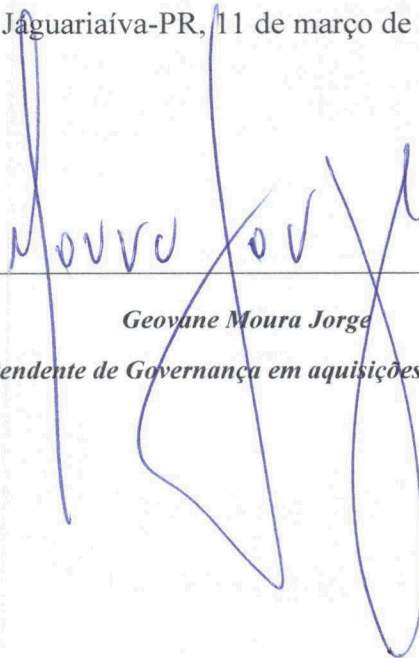 Jaguariaíva-PR, 11 de março de
Geovane Moura Jorge
endente de Governança em aquisições